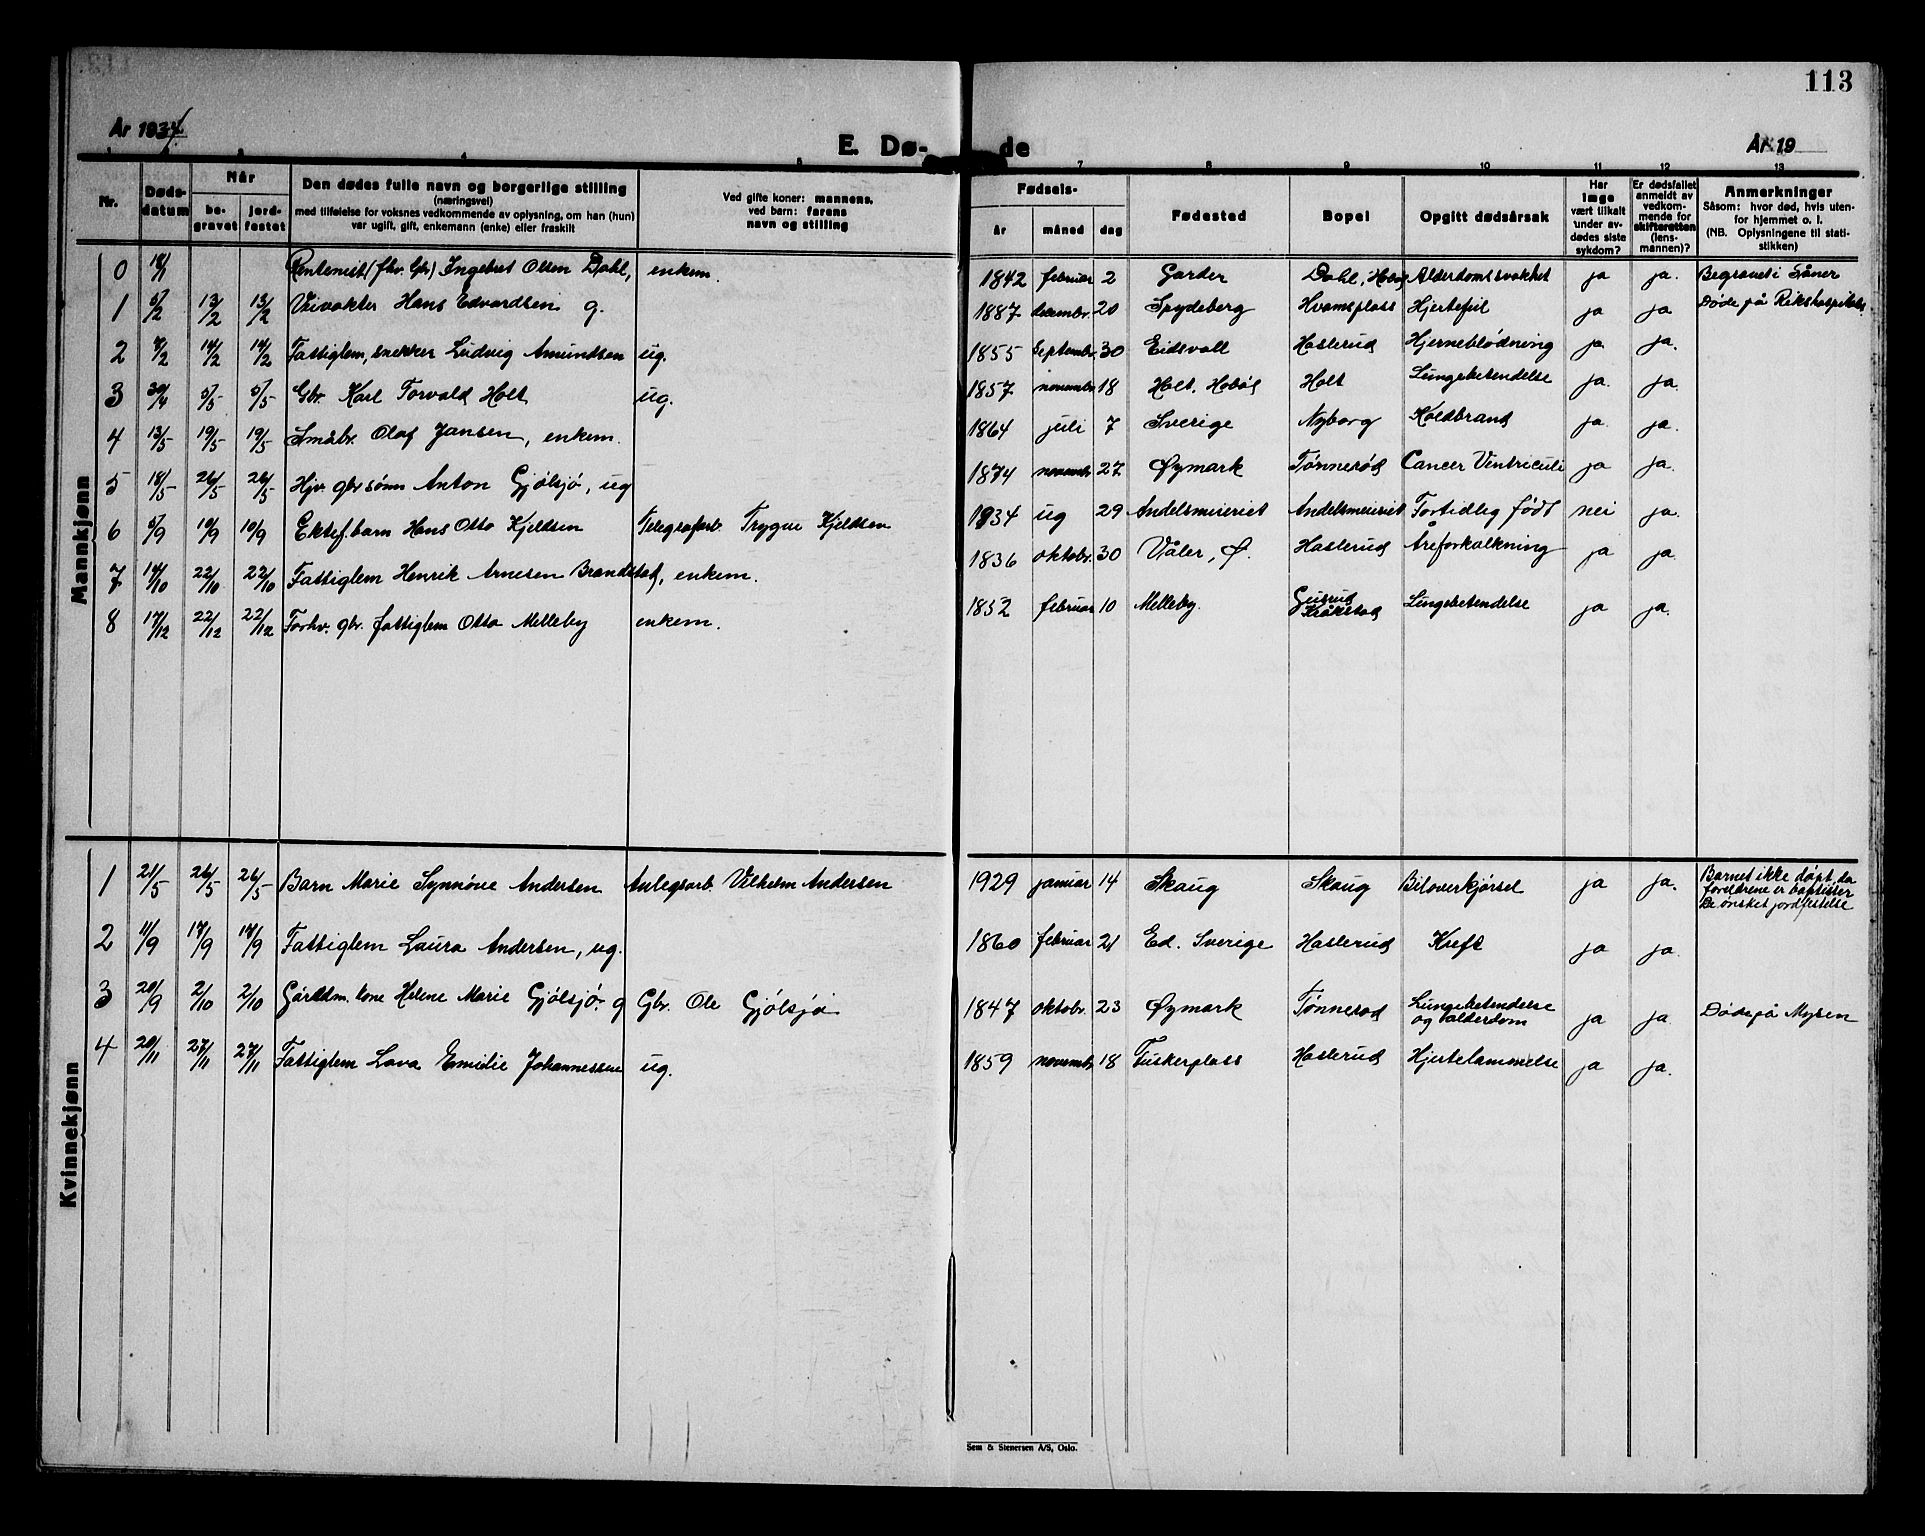 113
År 1934.
E. Dø- de
År 19
1 3 4 5 7 8 9 10 11 12 13
Nr.
Døds-
datum
Når
be-
gravet
jord-
festet
Den dødes fulle navn og borgerlige stilling
(næringsvei)
med tilføielse for voksnes vedkommende av oplysning, om han (hun)
var ugift, gift, enkemann (enke) eller fraskilt
Ved gifte koner: mannens,
ved barn: farens
navn og stilling
Fødsels-
år
måned
dag
Fødested
Bopel
Opgitt dødsårsak
Har
læge
vært tilkalt
under av-
dødes siste
sykdom?
Er dødsfallet
anmeldt av
vedkom-
mende for
skifteretten
(lens-
mannen)?
Anmerkninger
Såsom: hvor død, hvis uten-
for hjemmet o. l.
(NB. Oplysningene til stati-
stikken)
Mannkjønn
0 18/1 Rentenist (fhv. Gbr) Ingebret Olsen Dahl, enkem. 1842 februar 2 Garder Dahl, Hobøl Alderdomssvakhet ja ja. Begravet i Såner
1 5/2 13/2 13/2 Veivokter Hans Edvardsen g. 1887 desembr. 20 Spydeberg Hvamsplass Hjertefeil ja ja Døde på Rikshospitalet
2 8/2 14/2 14/2 Fattiglem, snekker Ludvig Amundsen ug. 1855 Septembr. 30 Eidsvoll Haslerud Hjerneblødning ja ja.
3 30/4 5/5 5/5 Gbr. Karl Torvald Holt ug. 1857 novembr. 18 Holt, Hobøl Holt Lungebetendelse ja ja.
4 13/5 19/5 19/5 Småbr. Olaf Jansen, enkem. 1864 juli 7 Sverige Nyborg Koldbrand ja ja.
5 18/5 26/5 26/5 Hjv. gbr.sønn Anton Gjølsjø, ug 1874 novembr. 27 Øymark Tønnerød Cancer Ventriculi ja ja.
6 5/9 10/9 10/9 Ektef. barn Hans Otto Kjeldsen Telegrafarb. Trygve Kjeldsen 1934 ug 29 Andelsmeieriet Andelsmeieriet Fortidlig født nei ja.
7 14/10 22/10 22/10 Fattiglem Henrik Arnesen Brandstad, enkem. 1836 oktobr. 30 Våler, Ø. Haslerud Åreforkalkning ja ja.
8 17/12 22/12 22/12 Forhv. gbr. fattiglem Otto Melleby enkem. 1852 februar 10 Melleby. Kråkstad Lungebetendelse ja ja.
Kvinnekjønn
1 21/5 26/5 26/5 Barn Marie Synnøve Andersen Anlegsarb. Vilhelm Andersen 1929 januar 14 Skaug Skaug Biloverkjørsel ja ja. Barnet ikke døpt, da
foreldrene er baptister
De ønsket jordfestelse
2 11/9 17/9 17/9 Fattiglem Laura Andersen, ug. 1860 februar 21 Ed. Sverige Haslerud Kreft ja ja.
3 20/9 2/10 2/10 Gårdm. kone Helene Marie Gjølsjø. g Gbr. Ole Gjølsjø 1847 oktobr. 23 Øymark Tønnerød Lungebetendelse
og alderdom ja ja Døde på Mysen
4 20/11 27/11 27/11 Fattiglem Lova Emilie Johannessen ug. 1859 novembr. 18 Tuskerplass Haslerud Hjertelammelse ja ja.
Sem & Stenersen A/S, Oslo.